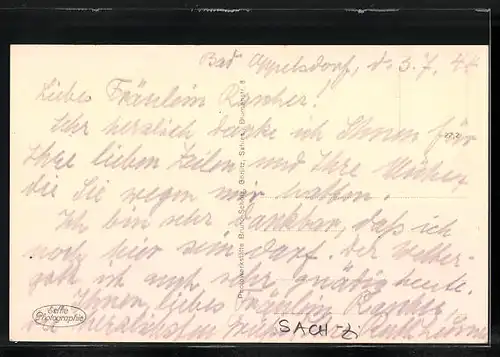 Bad Oppelsdorf, d. 3.7.44
Liebes Fräulein Rascher!
Sehr herzlich danke ich Ihnen für
Ihre lieben Zeilen und Ihre Mühen,
die Sie wegen mir hatten.
Ich bin sehr dankbar, daß ich
noch hier sein darf. Der Wetter-
gott ist auch sehr gnädig heute.
Ihnen, liebes Fräulein Rascher,
herzlichsten
Photowerkstätte Bruno Scholz, Görlitz, Sahrstr.
Echte
Photographie
SACHZ